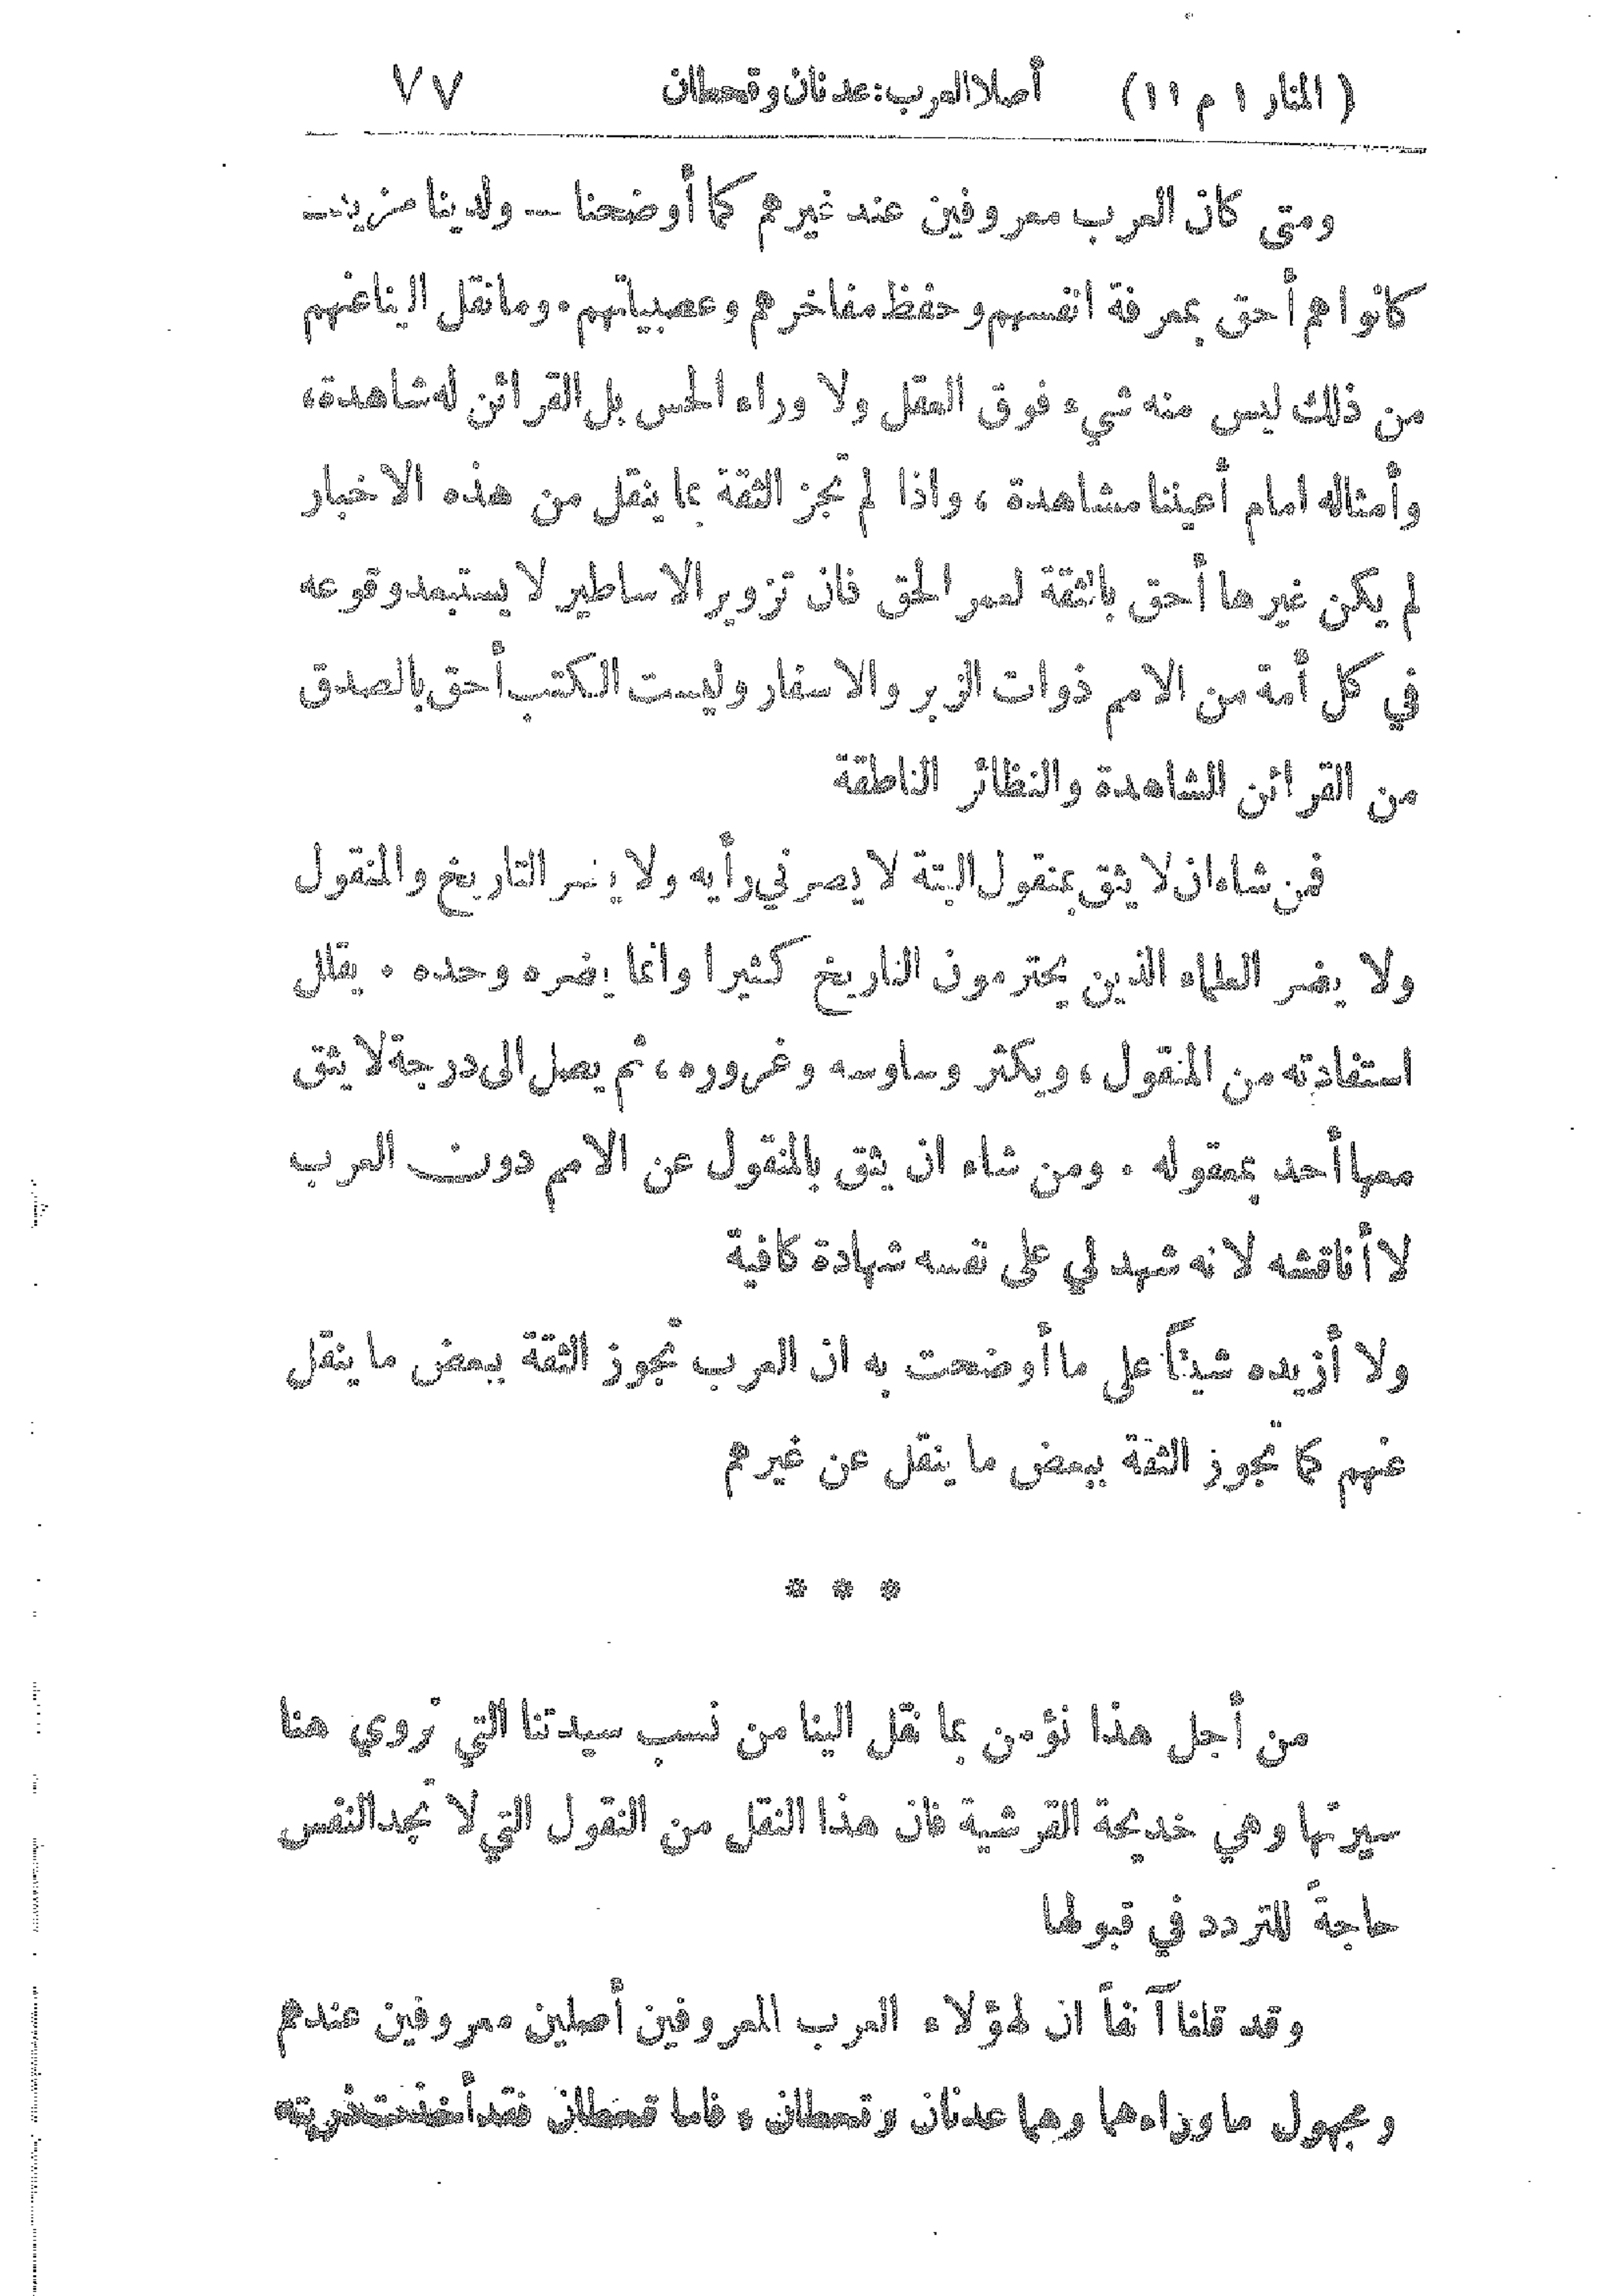 ( المنار ١ م ١١ ) أصلا العرب : عدنان وقحطان ٧٧
ومتى كان العرب معروفين عند غيرهم كما أوضحنا — ولدينا مزيد —
كانوا هم أحق بمعرفة انفسهم وحفظ مفاخرهم وعصبياتهم . وما نقل الينا عنهم
من ذلك ليس منه شيء فوق العقل ولا وراء الحس بل القرائن له شاهدة ،
وأمثاله امام أعيننا مشاهدة ، واذا لم تجز الثقة بما ينقل من هذه الاخبار
لم يكن غيرها أحق بالثقة لعمر الحق فان تزوير الاساطير لا يستبعد وقوعه
في كل أمة من الامم ذوات الزبر والاسفار وليست الكتب أحق بالصدق
من القرائن الشاهدة والنظائر الناطقة
فمن شاء ان لا يثق بمنقول البتة لا يضرني رأيه ولا يضر التاريخ والمنقول
ولا يضر العلماء الذين يحترمون التاريخ كثيرا وانما يضره وحده . يقلل
استفادته من المنقول ، ويكثر وساوسه وغروره ، ثم يصل الى درجة لا يثق
معها أحد بمعقوله . ومن شاء ان يثق بالمنقول عن الامم دون العرب
لا أناقشه لانه شهد لي على نفسه شهادة كافية
ولا أزيده شيئاً على ما أوضحت به ان العرب تجوز الثقة ببعض ما ينقل
عنهم كما تجوز الثقة ببعض ما ينقل عن غيرهم
* * *
من أجل هذا نؤمن بما نقل الينا من نسب سيدتنا التي نروي هنا
سيرتها وهي خديجة القرشية فان هذا النقل من النقول التي لا تجد النفس
حاجةً للتردد في قبولها
وقد قلنا آنفاً ان لهؤلاء العرب المعروفين أصلين معروفين عندهم
ومجهول ما وراءهما وهما عدنان وقحطان ، فاما قحطان فقد أخذت ذريته